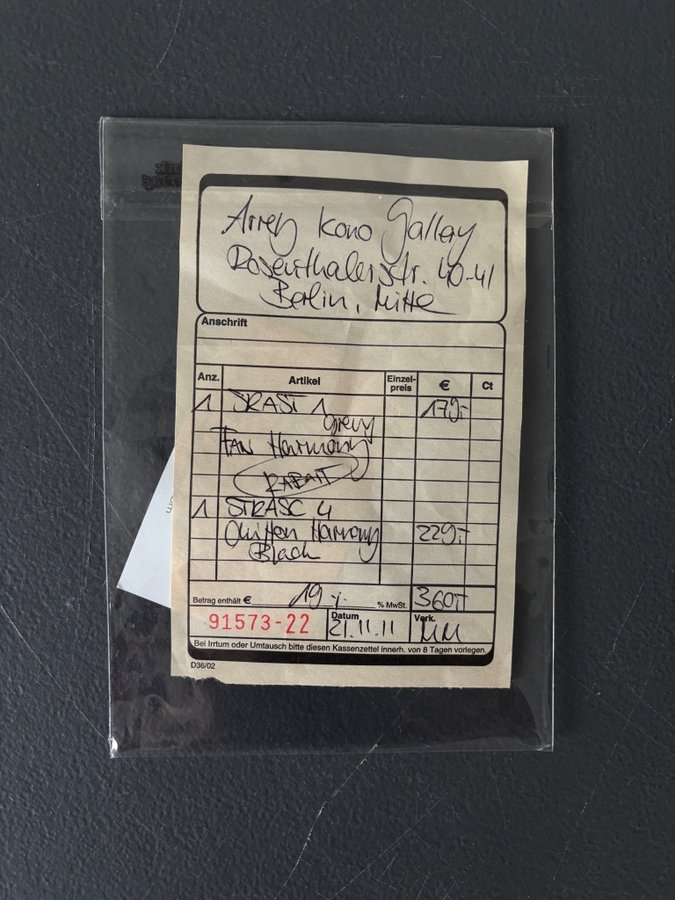 Arrey Kono Gallay
Rosenthalerstr. 40-41
Berlin, Mitte
Anschrift
Anz. Artikel Einzel-preis € Ct
1 1 179,-
grey
Harmony
RABATT
1 4
Harmony 229,-
Black
Betrag enthält € 19 % MwSt. 360,-
91573-22 Datum 21.11.11 Verk. MM
Bei Irrtum oder Umtausch bitte diesen Kassenzettel innerh. von 8 Tagen vorlegen.
D36/02